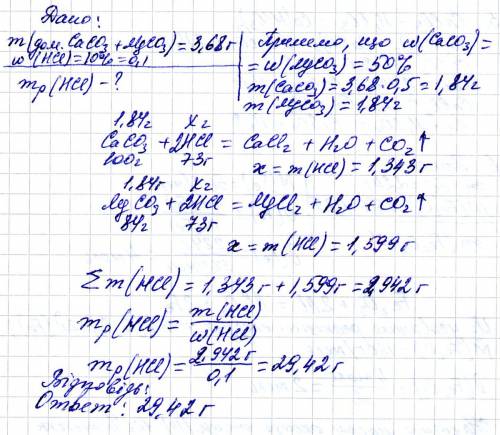 Дано:
m(дом. CaCO3 + MgCO3) = 3,68г
w(HCl) = 10% = 0,1
mр(HCl) - ?
Приймемо, що w(CaCO3) =
= w(MgCO3) = 50%
m(CaCO3) = 3,68 · 0,5 = 1,84г
m(MgCO3) = 1,84г
1,84г xг
CaCO3 + 2HCl = CaCl2 + H2O + CO2↑
100г 73г
x = m(HCl) = 1,343г
1,84г xг
MgCO3 + 2HCl = MgCl2 + H2O + CO2↑
84г 73г
x = m(HCl) = 1,599г
Σm(HCl) = 1,343г + 1,599г = 2,942г
mр(HCl) = m(HCl) / w(HCl)
mр(HCl) = 2,942г / 0,1 = 29,42г
Відповідь:
Ответ: 29,42г